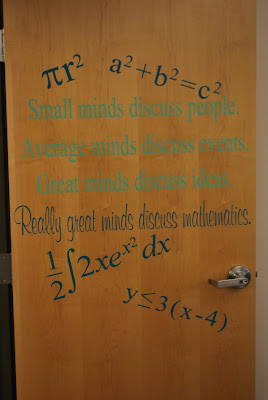 πr² a²+b²=c²
Small minds discuss people.
Average minds discuss events.
Great minds discuss ideas.
Really great minds discuss mathematics.
½∫2xeˣ² dx
y≤3(x-4)